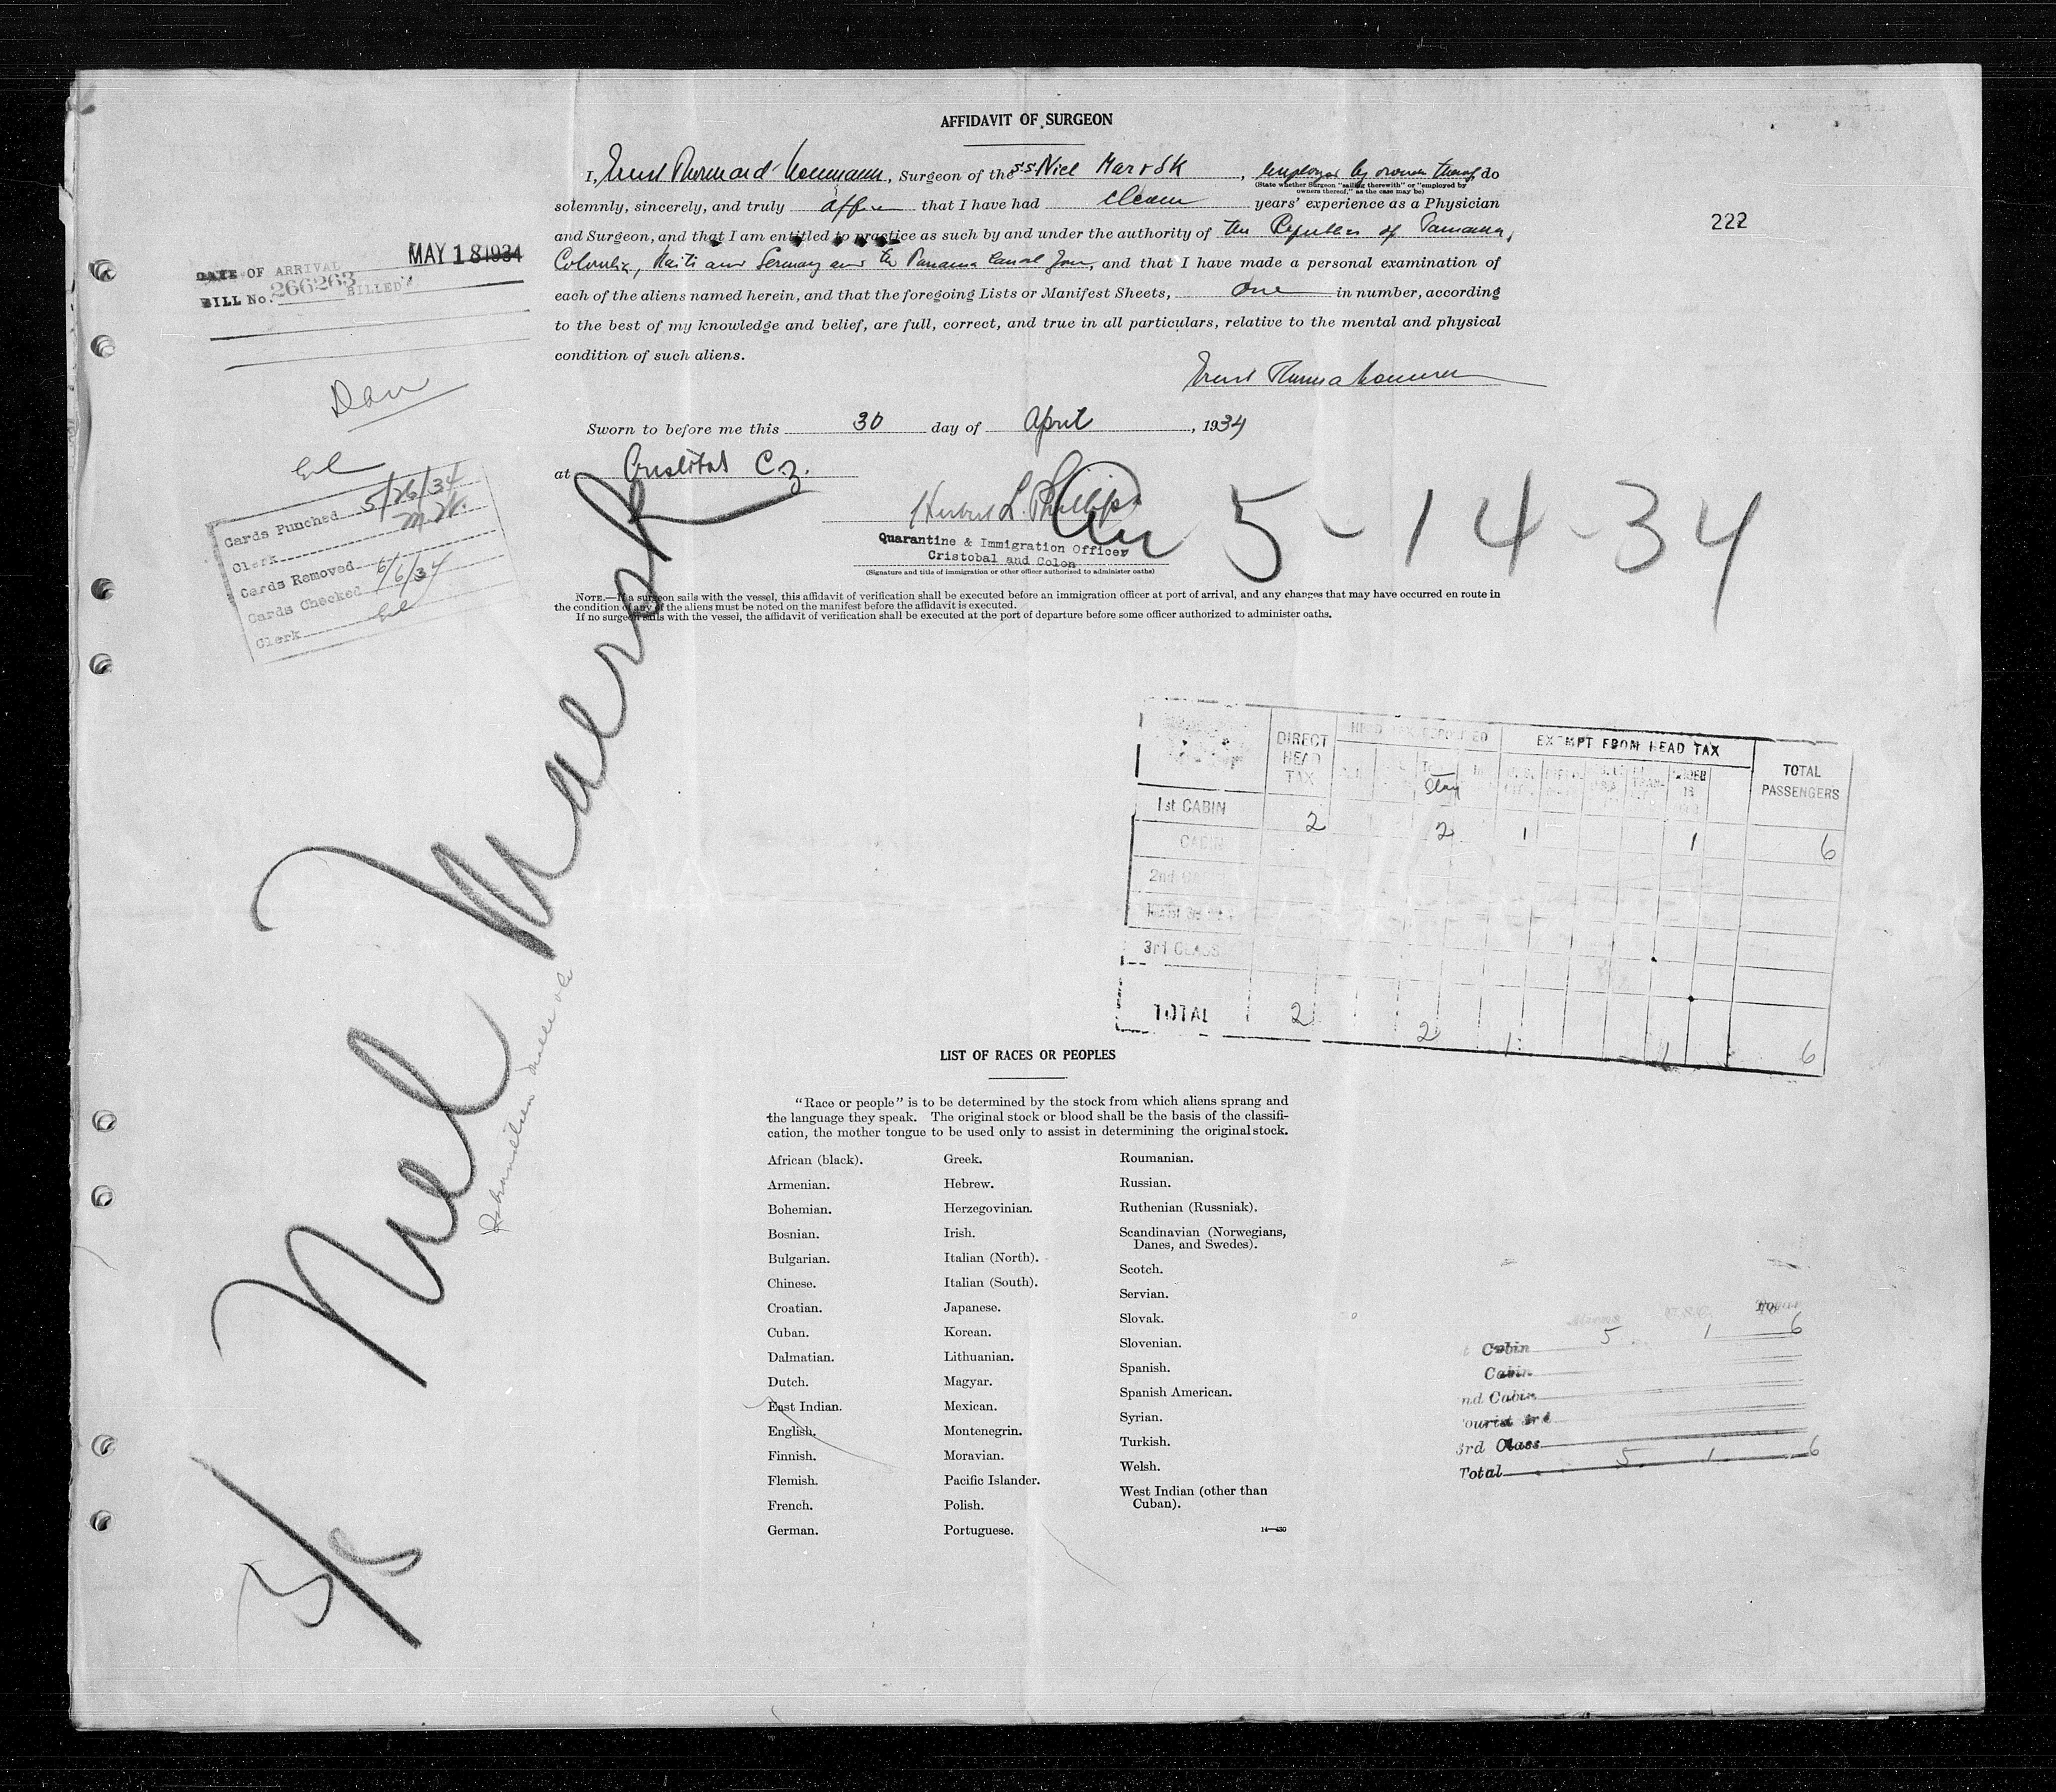 AFFIDAVIT OF SURGEON
I, Ernst Neumann, Surgeon of the S.S. Niel Marsk, employed by owners thereof do
(State whether Surgeon "sailing therewith" or "employed by
owners thereof," as the case may be)
solemnly, sincerely, and truly affirm that I have had eleven years' experience as a Physician
and Surgeon, and that I am entitled to practice as such by and under the authority of the Republic of Panama,
Colombia, Haiti and Germany and the Panama Canal Zone, and that I have made a personal examination of
each of the aliens named herein, and that the foregoing Lists or Manifest Sheets, one in number, according
to the best of my knowledge and belief, are full, correct, and true in all particulars, relative to the mental and physical
condition of such aliens.
222
MAY 18 1934
DATE OF ARRIVAL
BILL No. 266263 BILLED
Sworn to before me this 30 day of April, 1934
at Cristobal C.Z.
Herbert L. Phillips
Quarantine & Immigration Officer
Cristobal and Colon
(Signature and title of immigration or other officer authorized to administer oaths)
Arr 5-14-34
Cards Punched 5/26/34
Clerk M.W.
Cards Removed
Cards Checked 6/6/34
Clerk
NOTE.—If a surgeon sails with the vessel, this affidavit of verification shall be executed before an immigration officer at port of arrival, and any changes that may have occurred en route in
the condition of any of the aliens must be noted on the manifest before the affidavit is executed.
If no surgeon sails with the vessel, the affidavit of verification shall be executed at the port of departure before some officer authorized to administer oaths.
Niel Maersk
5/5
DIRECT HEAD TAX
EXEMPT FROM HEAD TAX
TOTAL PASSENGERS
1st CABIN 2 2 1 1 6
CABIN
2nd
3rd CLASS
TOTAL 2 2 1 1 6
LIST OF RACES OR PEOPLES
"Race or people" is to be determined by the stock from which aliens sprang and
the language they speak. The original stock or blood shall be the basis of the classifi-
cation, the mother tongue to be used only to assist in determining the original stock.
African (black).
Armenian.
Bohemian.
Bosnian.
Bulgarian.
Chinese.
Croatian.
Cuban.
Dalmatian.
Dutch.
East Indian.
English.
Finnish.
Flemish.
French.
German.
Greek.
Hebrew.
Herzegovinian.
Irish.
Italian (North).
Italian (South).
Japanese.
Korean.
Lithuanian.
Magyar.
Mexican.
Montenegrin.
Moravian.
Pacific Islander.
Polish.
Portuguese.
Roumanian.
Russian.
Ruthenian (Russniak).
Scandinavian (Norwegians,
Danes, and Swedes).
Scotch.
Servian.
Slovak.
Slovenian.
Spanish.
Spanish American.
Syrian.
Turkish.
Welsh.
West Indian (other than
Cuban).
14—430
Aliens U.S.C. Total
Cabin 5 1 6
Cabin
nd Cabin
ourist 3rd
3rd Class
Total 5 1 6